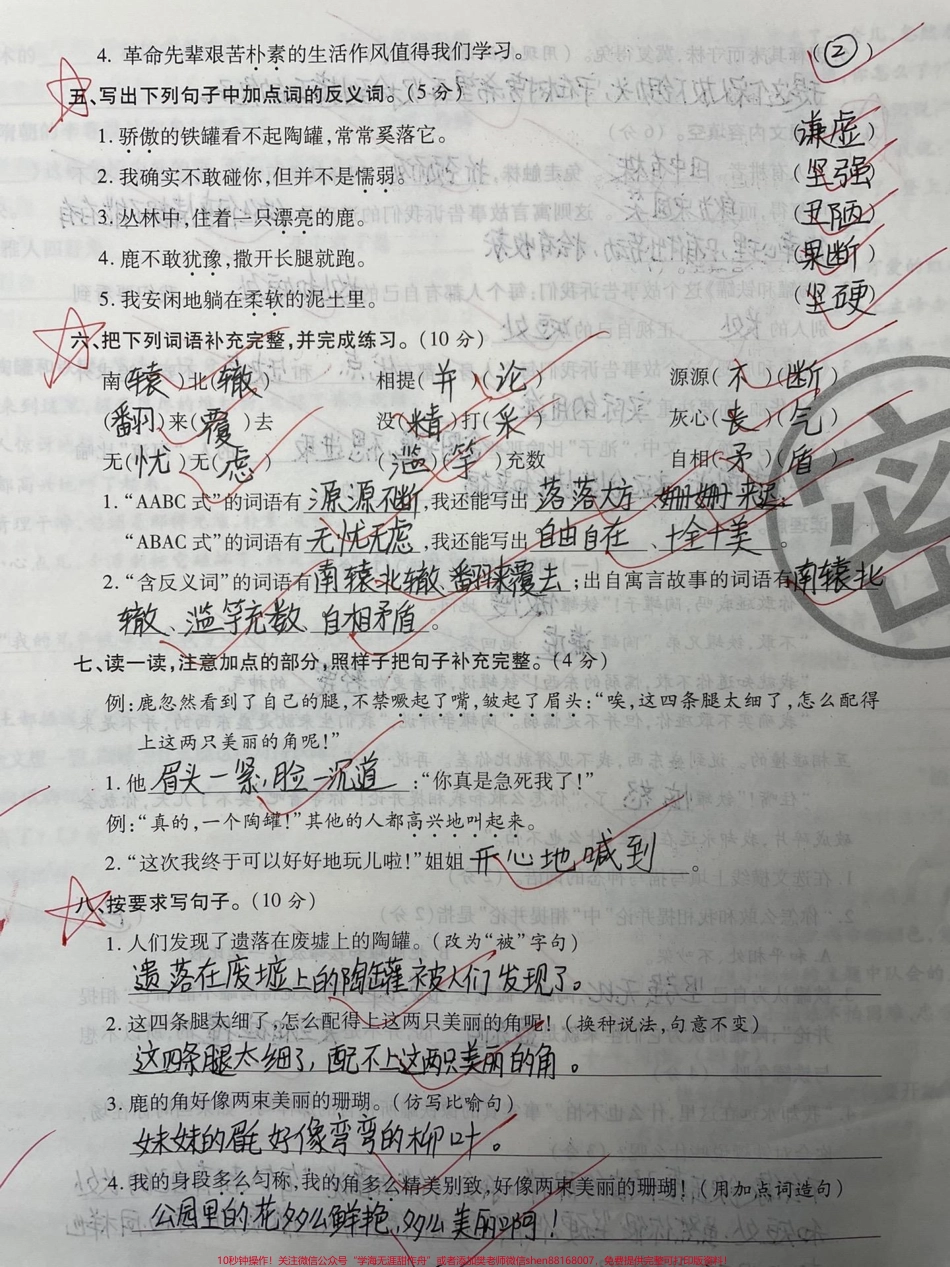 4. 革命先辈艰苦朴素的生活作风值得我们学习。 ②)
五、写出下列句子中加点词的反义词。(5分)
1. 骄傲的铁罐看不起陶罐,常常奚落它。 (谦虚)
2. 我确实不敢碰你,但并不是懦弱。 (坚强)
3. 丛林中,住着一只漂亮的鹿。 (丑陋)
4. 鹿不敢犹豫,撒开长腿就跑。 (果断)
5. 我安闲地躺在柔软的泥土里。 (坚硬)
六、把下列词语补充完整,并完成练习。(10分)
南(辕)北(辙) 相提(并)(论) 源源(不)(断)
(翻)来(覆)去 没(精)打(采) 灰心(丧)(气)
无(忧)无(虑) (滥)(竽)充数 自相(矛)(盾)
1. “AABC式”的词语有源源不断,我还能写出落落大方、姗姗来迟;
“ABAC式”的词语有无忧无虑,我还能写出自由自在、十全十美。
2. “含反义词”的词语有南辕北辙、翻来覆去;出自寓言故事的词语有南辕北
辙、滥竽充数、自相矛盾。
七、读一读,注意加点的部分,照样子把句子补充完整。(4分)
例:鹿忽然看到了自己的腿,不禁噘起了嘴,皱起了眉头:“唉,这四条腿太细了,怎么配得
上这两只美丽的角呢!”
1. 他眉头一紧,脸一沉道:“你真是急死我了!”
例:“真的,一个陶罐!”其他的人都高兴地叫起来。
2. “这次我终于可以好好地玩儿啦!”姐姐开心地喊到。
八、按要求写句子。(10分)
1. 人们发现了遗落在废墟上的陶罐。(改为“被”字句)
遗落在废墟上的陶罐被人们发现了。
2. 这四条腿太细了,怎么配得上这两只美丽的角呢!(换种说法,句意不变)
这四条腿太细了,配不上这两只美丽的角。
3. 鹿的角好像两束美丽的珊瑚。(仿写比喻句)
妹妹的眉毛好像弯弯的柳叶。
4. 我的身段多么匀称,我的角多么精美别致,好像两束美丽的珊瑚!(用加点词造句)
公园里的花多么鲜艳,多么美丽啊!
密
10秒钟操作!关注微信公众号“学海无涯甜作舟”或者添加樊老师微信shen88168007,免费提供完整可打印版资料!